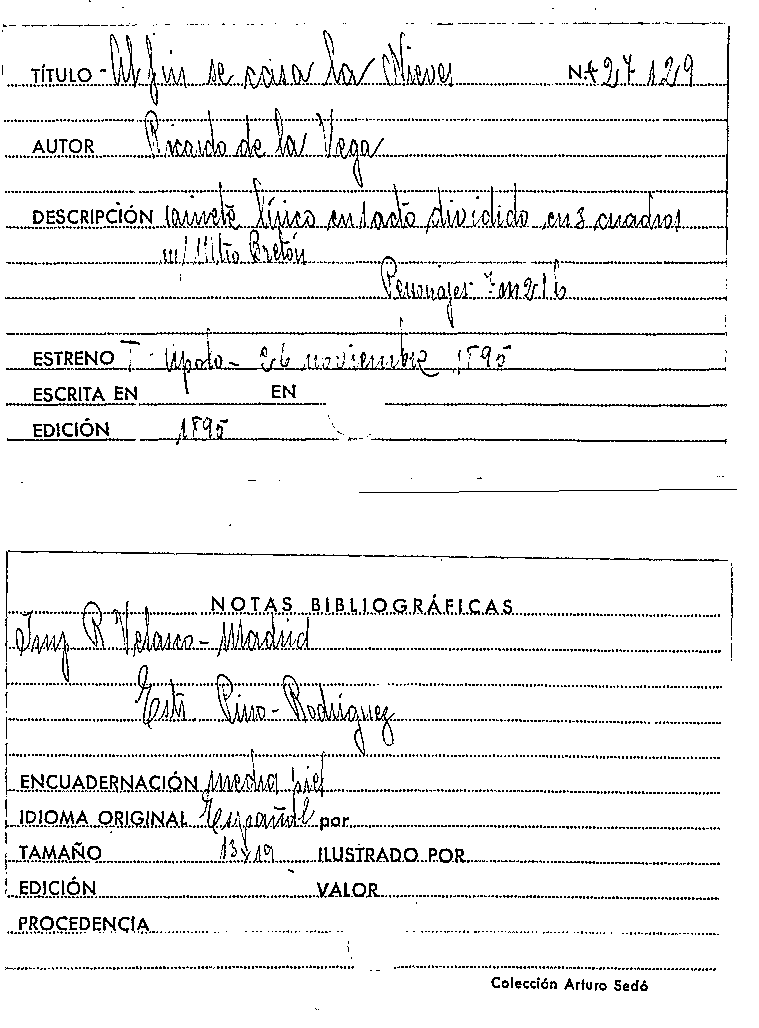 TÍTULO - Al fin se casa la Nieves Nº 27129
AUTOR Ricardo de la Vega
DESCRIPCIÓN sainete lírico en 1 acto dividido en 3 cuadros
m/ Mtro Bretón
Personajes 7 m 21 h
ESTRENO T- Apolo - 26 noviembre 1895
ESCRITA EN EN
EDICIÓN 1895
NOTAS BIBLIOGRÁFICAS
Imp R Velasco - Madrid
Estr. Pino - Rodríguez
ENCUADERNACIÓN media piel
IDIOMA ORIGINAL Español por
TAMAÑO 13x19 ILUSTRADO POR
EDICIÓN VALOR
PROCEDENCIA
Colección Arturo Sedó